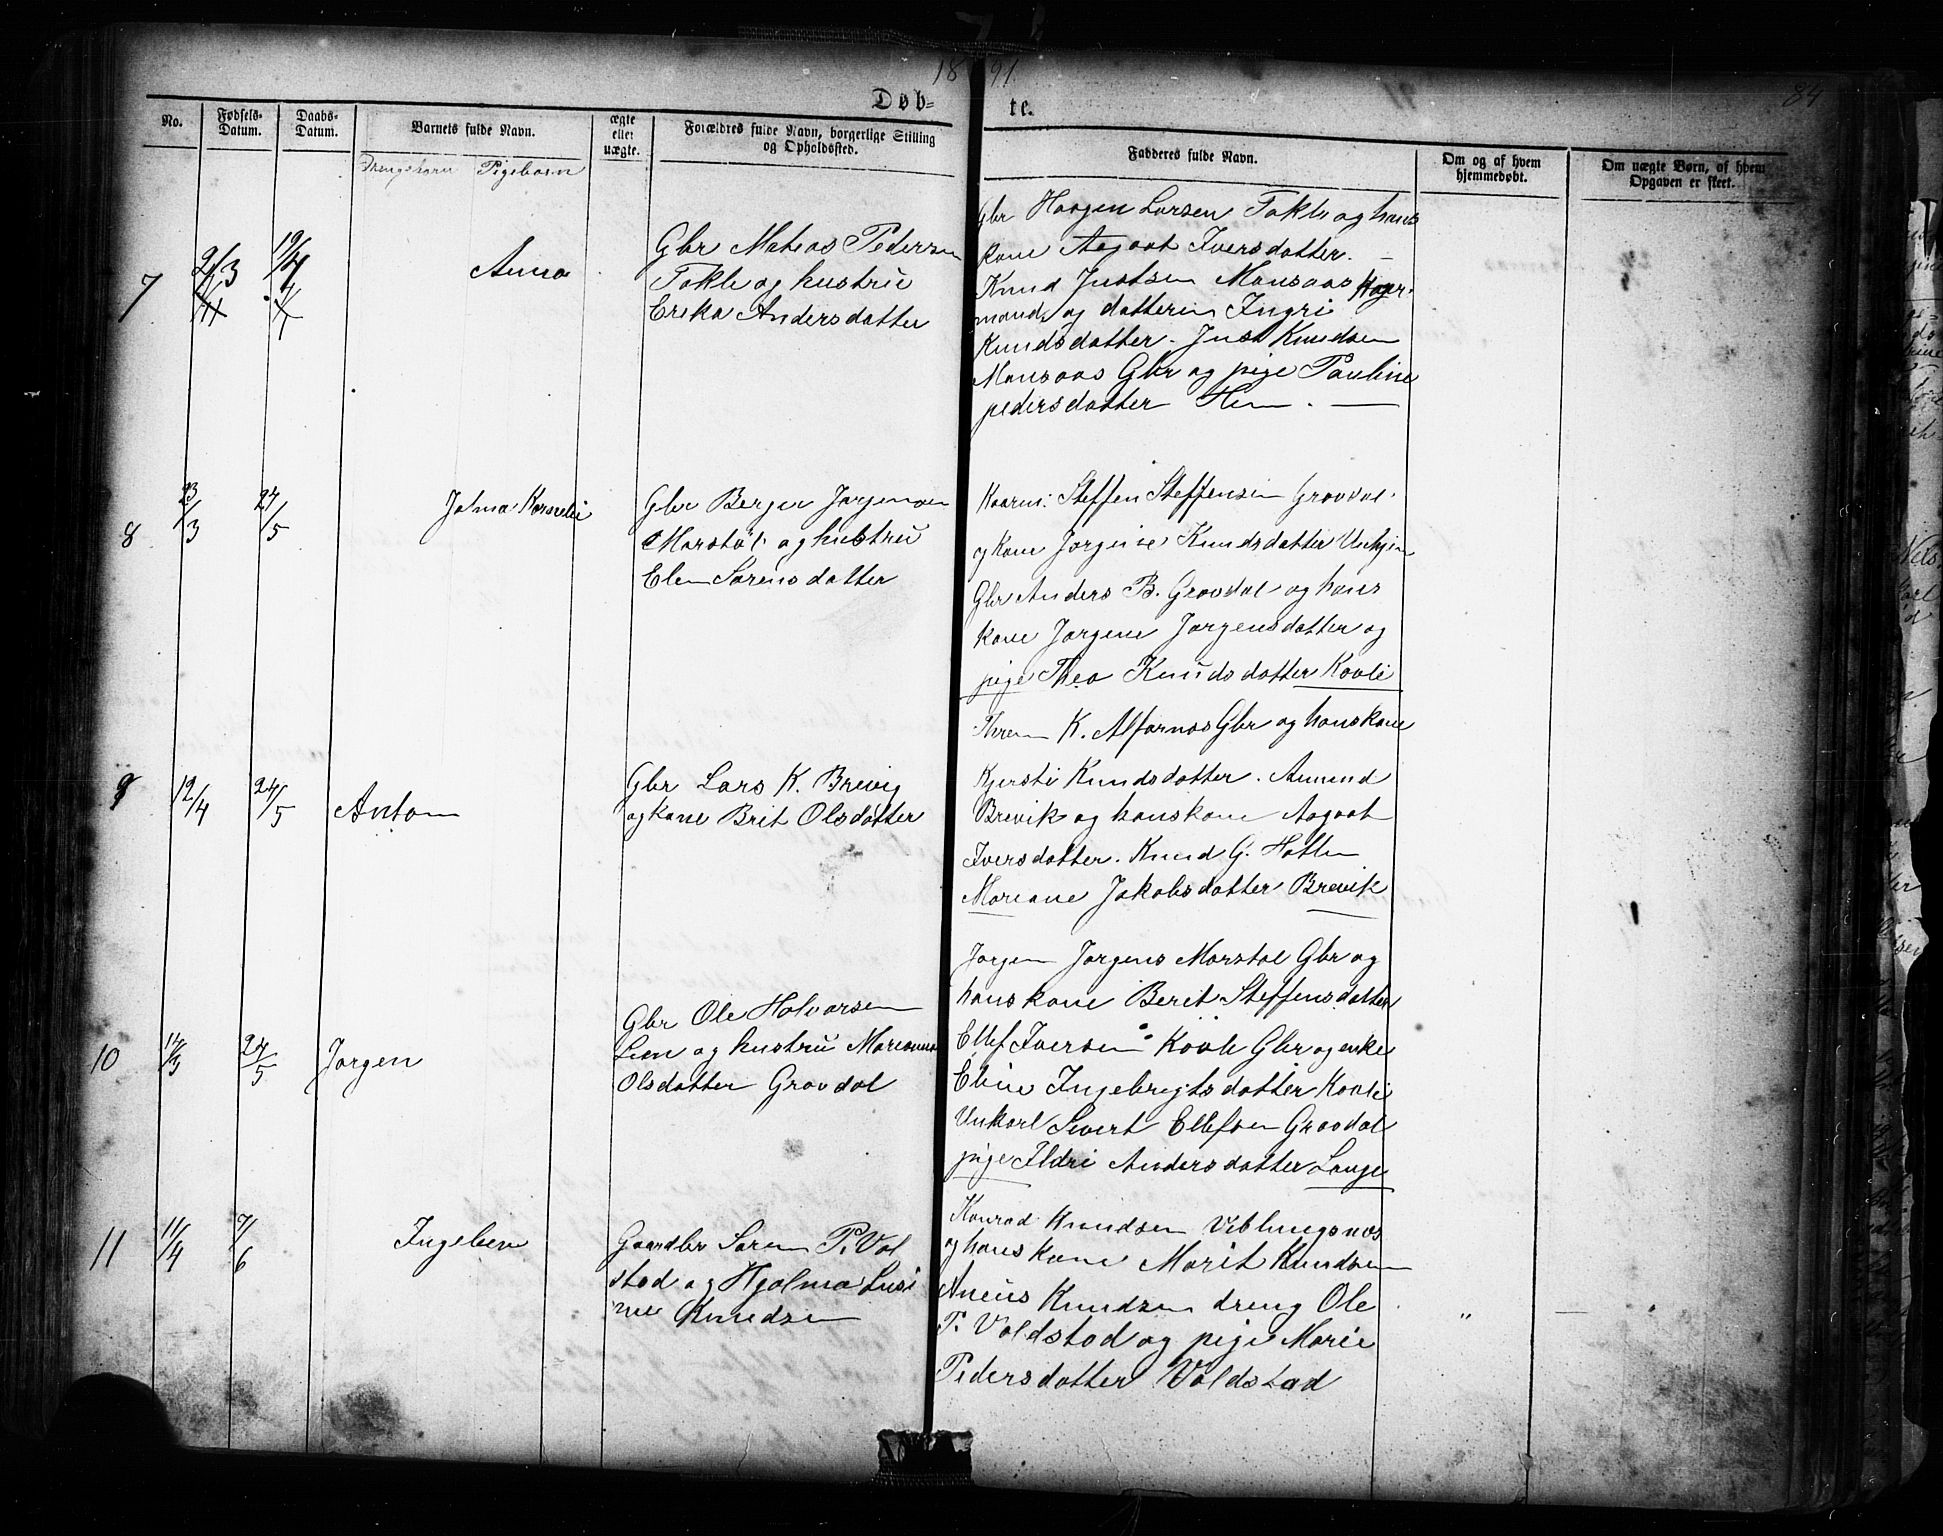 1891.
84
Døb-
te.
No.
Fødsels-
Datum.
Daabs-
Datum.
Barnets fulde Navn.
ægte
eller
uægte.
Forældres fulde Navn, borgerlige Stilling
og Opholdssted.
Fadderes fulde Navn.
Om og af hvem
hjemmedøbt.
Om uægte Børn, af hvem
Opgaven er skeet.
Drengebørn Pigebørn
7
2/3
19/4
Anna
Gbr Matias Pedersen
Tokle og hustru
Erika Andersdatter
Gbr Haagen Larsen Tokle og hans
kone Aagaat Iversdatter.
Knud Justsen Mansaas Kaar-
mand og datteren Ingri
Knudsdatter. Just Knudsen
Mansaas Gbr og pige Pauline
pedersdatter Hem.
8
23/3
24/5
Jalma
Gbr Berger Jørgensen
Morstøl og hustru
Elen Sørensdatter
Kaarm: Steffen Steffensen Grovdal
og kone Jørgine Knudsdatter
Gbr Anders B. Grovdal og hans
kone Jørgine Jørgensdatter og
pige Thea Knudsdatter Kavli
9
12/4
24/5
Anton
Gbr Lars K. Brevig
og kone Brit Olsdatter
K. Alfarnas Gbr og hans kone
Kjersti Knudsdatter. Amund
Brevik og hans kone Aagaat
Iversdatter. Knud G. Hatlen
Mariane Jakobsdatter Brevik
10
14/3
24/5
Jørgen
Gbr Ole Halvorsen
Lien og hustru Marianne
Olsdatter Grovdal
Jørgen Jørgens Morstøl Gbr og
hans kone Berit Steffensdatter
Ellef Iversen Kavli Gbr og enke
Eline Ingebrigtsdatter Kavli
Unkarl Sivert Ellefsen Grovdal
pige Ildri Andersdatter Lange
11
11/4
7/6
Ingeleiv
Gaardbr Søren P. Vol
stad og Hjalma Lusi
ne Knudsen
Konrad Knudsen Veblungsnes
og hans kone Marit Knudsen
Aneus Knudsen dreng Ole
P. Voldstad og pige Marie
Pedersdatter Voldstad
"